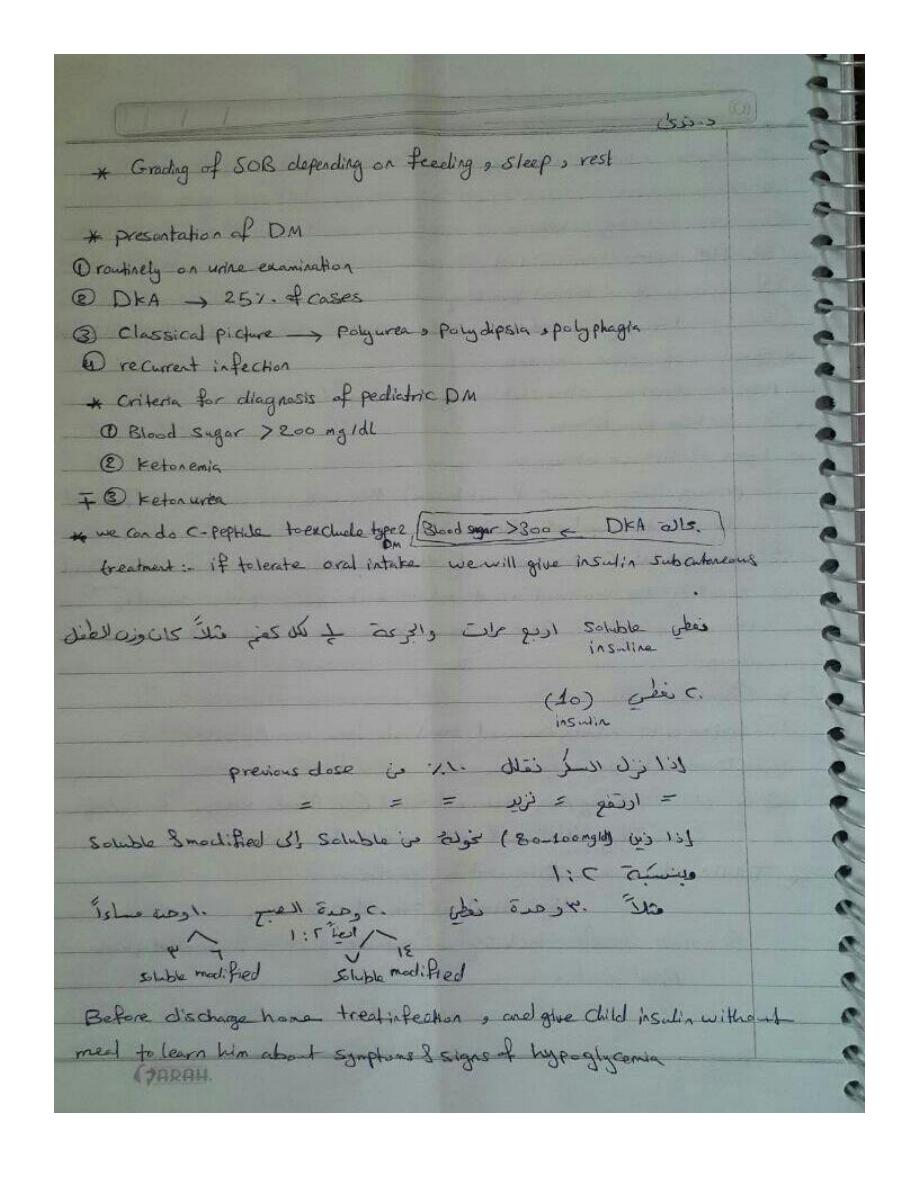 د. ندى
* Grading of SOB depending on feeding, sleep, rest
* presentation of DM
① routinely on urine examination
② DKA → 25% of cases
③ Classical picture → polyurea, polydipsia, polyphagia
④ recurrent infection
* Criteria for diagnosis of pediatric DM
① Blood sugar > 200 mg/dl
② Ketonemia
∓ ③ Ketonurea
* we can do C-peptide to exclude type 2 DM, Blood sugar > 300 ← DKA حالة
treatment:- if tolerate oral intake we will give insulin subcutaneous
نعطي soluble insuline اربع مرات والجرعة لكل كغم مثلاً كان وزن الطفل
٢٠ نعطي (10) insulin
إذا نزل السكر نقلل ١٠٪ من previous dose
= ارتفع = نزيد = = =
إذا زين (80-100mg/dl) نحوله من soluble إلى soluble & modified
وبنسبة ١:٢
مثلاً ٣٠ وحدة نعطي ٢٠ وحدة الصبح ١٠ وحدة مساءاً
أيضاً ١:٢
٣ ٦ ٧ ١٤
soluble modified soluble modified
Before discharge home treat infection, and give child insulin without
meal to learn him about symptoms & signs of hypoglycemia
GARAH.